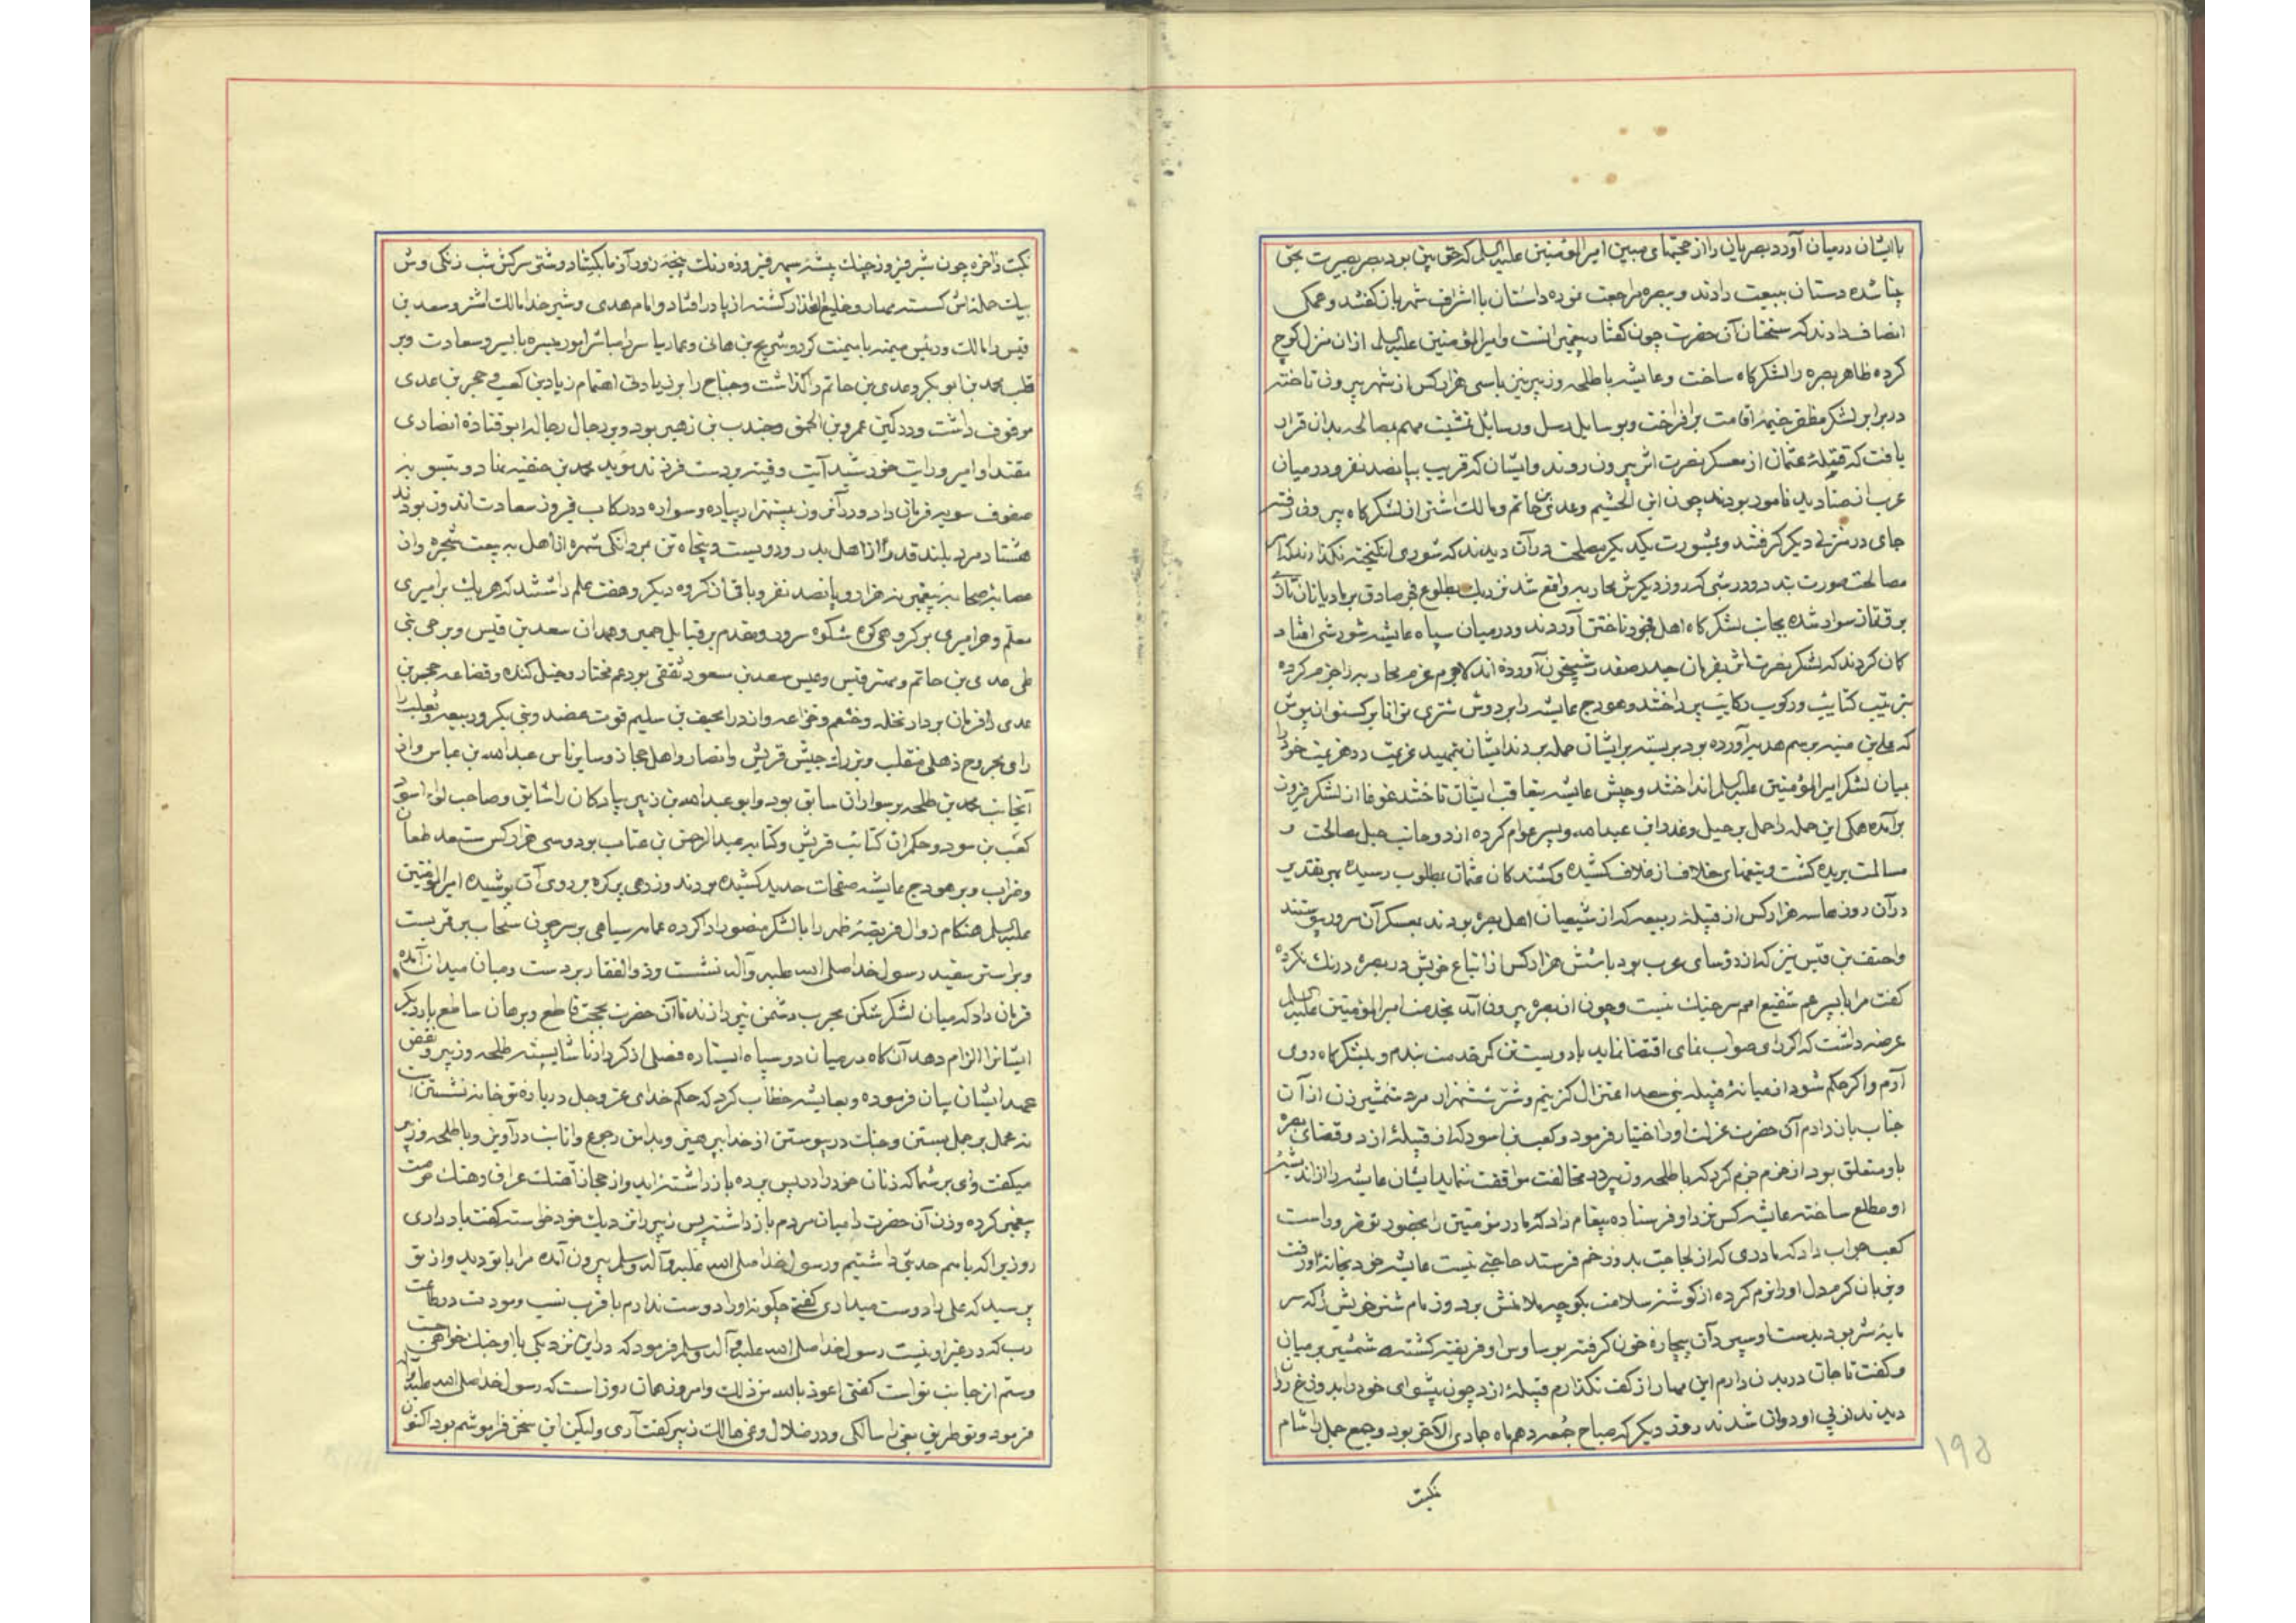 با ایشان در میان آورد بصریان را از حجتهای مبین امیرالمؤمنین علیه السلم که حق بین بود بصر بصیرت بحق
بینا شده دستان ببیعت دادند و ببصره مراجعت نموده داستان با اشراف شهر بازگفتند و همکی
انصاف دادند که سخنان آن حضرت چون گفتار پیغمبرانست و امیرالمؤمنین علیه السلم از ان منزل کوچ
کرده ظاهر بصره را لشکرکاه ساخت و عایشه با طلحه و زبیر نیز با سی هزار کس از شهر بیرون تاخته
در برابر لشکر مظفر خیمهٔ اقامت برافراخت و بوسایل رسل و رسایل تمشیت مهم مصالحه بدان قرار
یافت که قتلهٔ عثمان از معسکر نصرت اثر بیرون روند و ایشان که قریب بپانصد نفر و در میان
عرب از صنادید نامور بودند چون ابن الحشیم و عدی بن حاتم و مالک اشتر از لشکرکاه بیرون رفته
جای در منزلی دیگر گرفتند و بمشورت یکدیگر مصلحت در آن دیدند که شوری انگیخته نگذارند که امر
مصالحت صورت بندد و در شبی که روز دیگرش محاربه واقع شد نزدیک بطلوع فجر صادق بر بادپایان تازی
برق تاز سوار شده بجانب لشکرکاه اهل فجور تاختن آوردند و در میان سپاه عایشه شورشی افتاد
گمان کردند که لشکر نصرت اثر بفرمان حیدر صفدر شبیخون آورده اند لاجرم عزم محاربه را جزم کرده
بترتیب کتایب و رکوب رکایب پرداختند و هودج عایشه را بر دوش شتری توانا برکستوان پوش
که یعلی بن منیه برسم هدیه آورده بود بربسته بر ایشان حمله بردند ایشان بتمهید عزیمت در هزیمت خود را
میان لشکر امیرالمؤمنین علیه السلم انداختند و جیش عایشه بتعاقب ایشان تاختند غوغا از لشکر فیروز
برآمده همکی این حمله را حمل بر حیل و غدر ابن عبدالله و پسر عوام کرده از دو جانب حبل مصالحت و
مسالمت بریده گشت و تیغهای خلاف از غلاف کشیده و کشندکان عثمان بمطلوب رسیده بهر تقدیر
در آن روزها سه هزار کس از قبیلهٔ ربیعه که از شیعیان اهل بصره بودند بعسکر آن سرور پیوستند
واحنف بن قیس نیز که از رؤسای عرب بود با شش هزار کس از اتباع خویش در بصره درنگ نکرده
گفت مرا با پسر عم شفیع امم سر جنگ نیست و چون از بصره بیرون آمد بخدمت امیرالمؤمنین علیه السلم
عرضه داشت که اگر رای صواب نمای اقتضا نماید با دویست تن کمر خدمت بندم و بلشکرکاه روی
آرم و اگر حکم شود از میانهٔ قبیله بنی سعد اعتزال گزینم و شر ششهزار مرد شمشیر زن از آن
جناب بازدارم آن حضرت عزلت او را اختیار فرمود و کعب بن اسود که از قبیلهٔ ازد و قضای بصره
باو متعلق بود از حزم جزم کرد که با طلحه و زبیر در مخالفت موافقت ننماید ایشان عایشه را از اندیشهٔ
او مطلع ساخته عایشه کس نزد او فرستاده پیغام داد که مادر مؤمنین را بحضور تو ضروراست
کعب جواب داد که مادری که از لجاجت بدوزخم فرستد حاجتی نیست عایشه خود بخانهٔ او رفت
وبزبان گرم دل او را نرم کرده از گوشهٔ سلامت بکوچه ملامتش برد و زمام شتر خویش را که سر
مایهٔ شر بود بدست او سپرد آن بیچاره خون گرفته بوساوس او فریفته گشته شمشیر بر میان
و گفت تا جان در بدن دارم این مهار از کف نگذارم قبیلهٔ ازد چون پیشوای خود را بدوزخ روان
دیدند از پی او دوان شدند روز دیگر که صباح جمعه دهم ماه جمادی الآخر بود و جمع جمل را شام
نکبت
۱۹۵
نکبت ذخره چون شیر فیروز چنک بیشهٔ سپهر فیروزه رنک پنجه زور آزما بکشاد و شتر سرکش شب زنکی وش
بیک حمله اش کسسته مهار و خلیع العذار کشته از پا در افتاد و امام هدی و شیر خدا مالک اشتر و سعد بن
قیس را مالک و رئیس میمنه با میمنت کرد و شریح بن هانی و عمار یاسر را مباشر امور میسره با یسر و سعادت و بر
قلب محمد بن ابوبکر و عدی بن حاتم را گذاشت و جناح را بر زیادتی اهتمام زیاد بن کعب و حجر بن عدی
موقوف داشت و در کمین عمرو بن الحمق و جندب بن زهیر بود و بر رجال رجاله ابو قتادهٔ انصاری
مقتدا و امیر و رایت خورشید آیت و قیته بدست فرزند مؤید محمد بن حنفیه نهاد و بتسویه
صفوف سویه فرمان داد و در آن روز بیستهزار پیاده و سواره در رکاب فیروز سعادت اندوز بودند
هشتاد مرد بلند قدر از اهل بدر و دویست و پنجاه تن بمردانگی شهره از اهل بیعت شجره واز
عصابهٔ صحابهٔ پیغمبر هزار و پانصد نفر و باقی از گروه دیگر و هفت علم داشتند که هر یک بر امیری
معلم و هر امیری بر گروهی کوه شکوه سرور و مقدم بر قبایل حمیر و همدان سعد بن قیس و بر حی بنی
طی عدی بن حاتم و مهتر قیس و عبس سعد بن سعود ثقفی بود عم مختار و خیل کنده و قضاعه حجر بن
عدی را فرمان بردار نخله و خثعم و خزاعه و ازد را مخنف بن سلیم قوت عضد و بنی بکر و ربیعه و تغلب را
رای مجروح ذهلی منقلب و بزرک جیش قریش و انصار و اهل حجاز و سایر ناس عبدالله بن عباس واز
آنجانب محمد بن طلحه بر سواران سابق بود و ابو عبدالله بن زبیر پیادکان را شایق و صاحب لواء اسوق
کعب بن سود و حکمران کتائب قریش و کتابه عبدالرحمن بن عتاب بود و سی هزار کس مستعد طعان
وضراب و بر هودج عایشه صفحات حدید کشیده بودند و زرهی پرکره بر روی آن پوشیده امیرالمؤمنین
علیه السلم هنکام زوال فریضهٔ ظهر را با لشکر منصور ادا کرده عمامه سیاهی بر سر چون سحاب بر قمر بست
وبر استر سفید رسول خدا صلی الله علیه وآله نشست و ذوالفقار بر دست و میان میدان آمده
فرمان داد که میان لشکرشکن بحرب دشمن نپردازند تا آن حضرت بحجت قاطع و برهان ساطع بار دیگر
ایشانرا الزام دهد آن کاه در میان دو سپاه ایستاده فصلی از کردار ناشایسته طلحه و زبیر و نقض
عهد ایشان بیان فرموده و بعایشه خطاب کرد که حکم خدای عز و جل درباره تو خانه نشستن است
نه عمل بر جمل بستن و جنک در پیوستن از خدا بپرهیز و بدامن رجوع و انابت درآویز و با طلحه و زبیر
میگفت وای بر شما که زنان خود را در پس پرده باز داشته اید و از حجاز آهنک عراق و هتک حرمت
پیغمبر کرده و زن آن حضرت را میان مردم باز داشته پس زبیر را نزدیک خود خواسته گفت یاد داری
روزیرا که باهم حدیثی داشتیم و رسول خدا صلی الله علیه وآله وسلم بیرون آمده مرا با تو دید و از تو
پرسید که علی را دوست میداری گفتی چگونه او را دوست ندارم با قرب نسب و مودت در طاعت
رب که در غیر او نیست رسول خدا صلی الله علیه وآله وسلم فرمود که در این نزدیکی با او جنک خواهی جست
وستم از جانب تو است گفتی اعوذ بالله من ذلک و امروز همان روز است که رسول خدا صلی الله علیه وآله
فرمود و تو طریق بغی را سالکی و در ضلال و غی هالک زبیر گفت آری ولیکن این سخن فراموشم بود اکنون